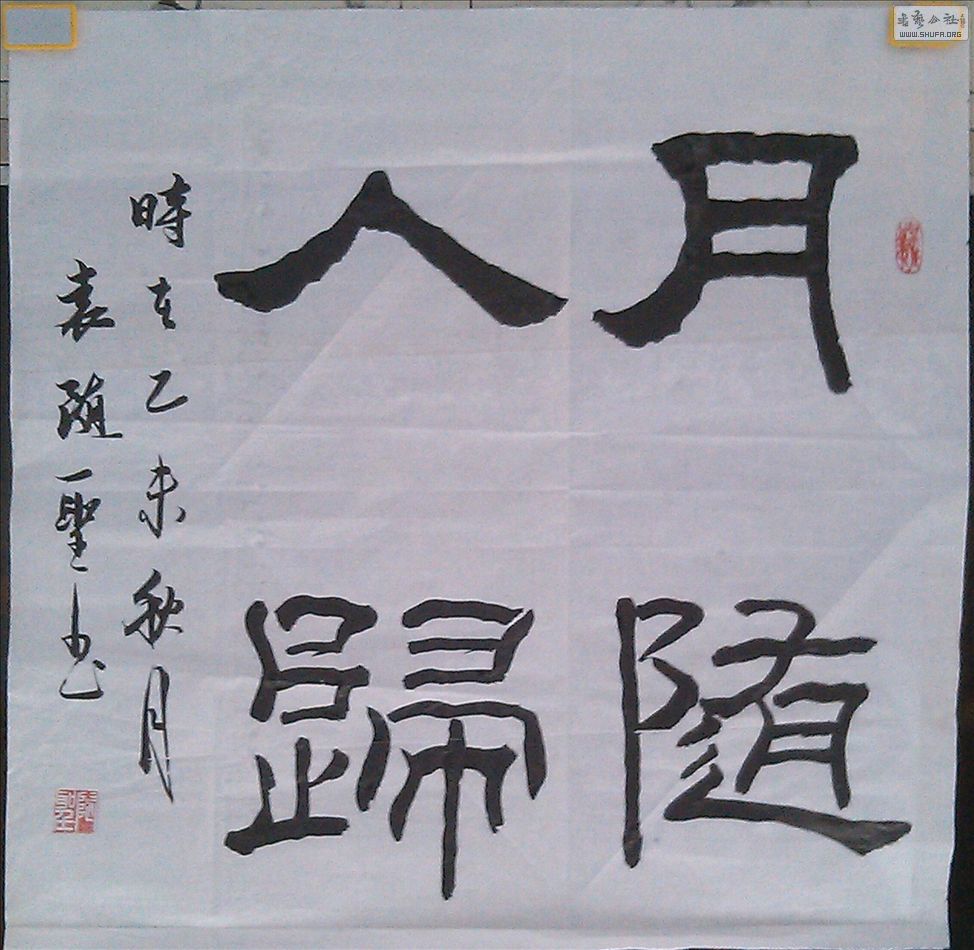 月随
人歸
時在乙未秋月
袁随聖书
书艺公社
WWW.SHUFA.ORG